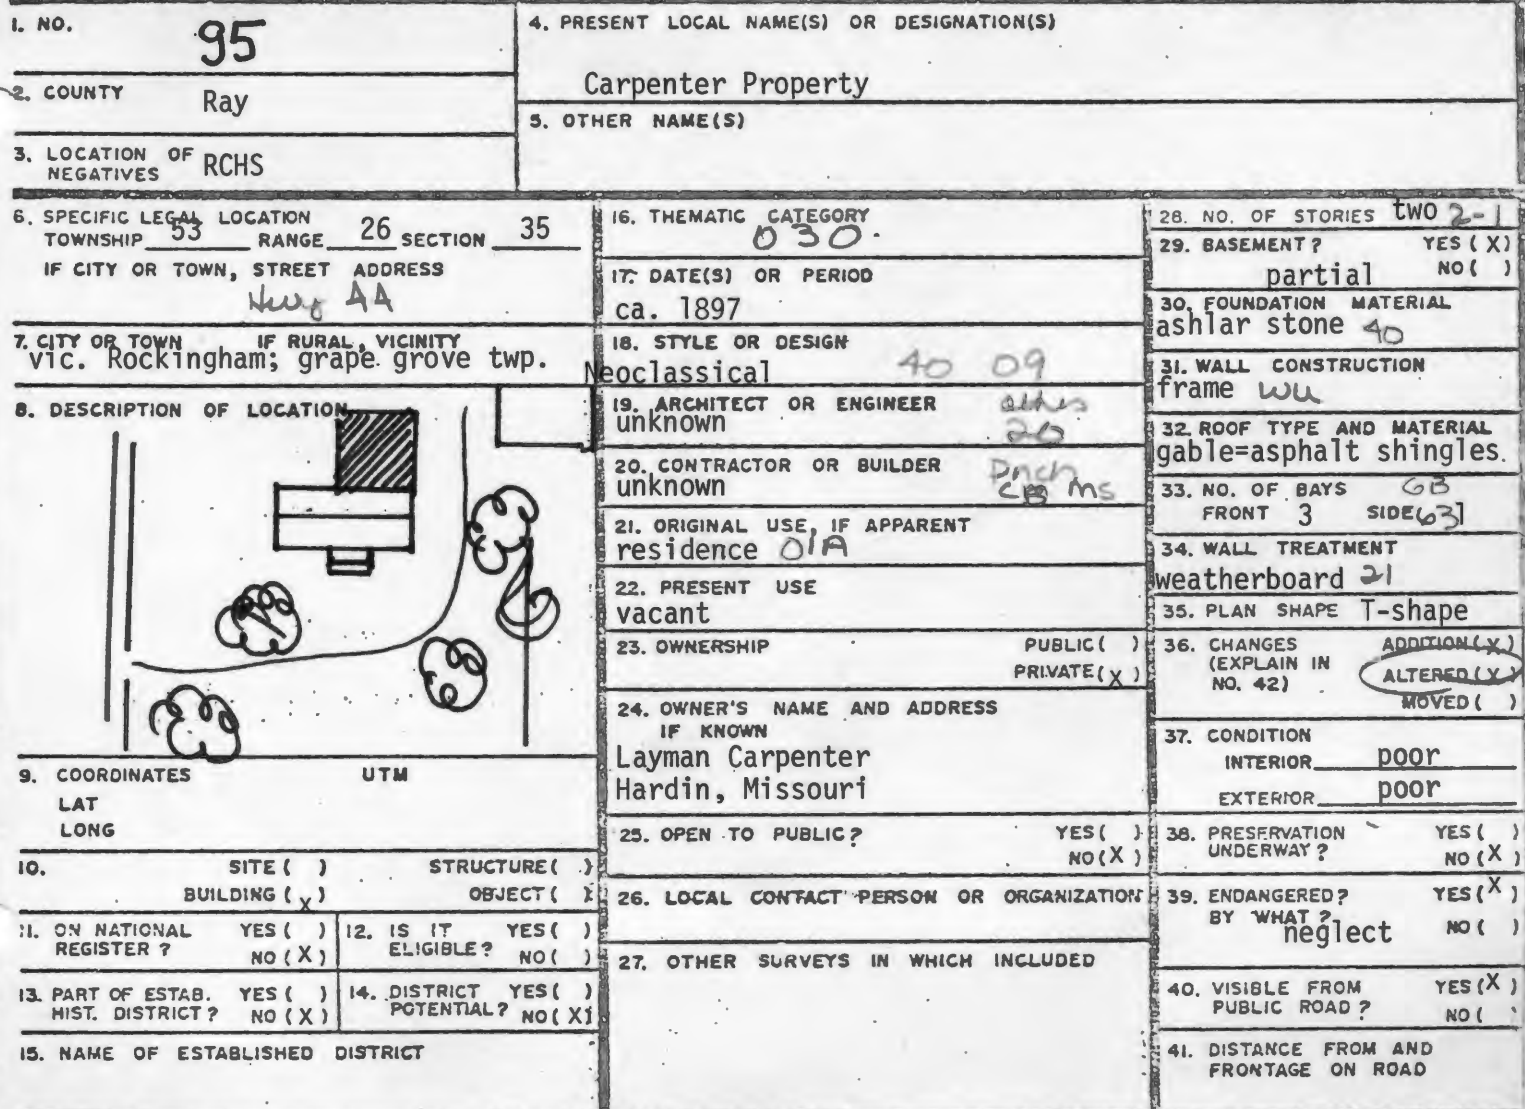 1. NO. 95
2. COUNTY Ray
3. LOCATION OF NEGATIVES RCHS
4. PRESENT LOCAL NAME(S) OR DESIGNATION(S)
Carpenter Property
5. OTHER NAME(S)
6. SPECIFIC LEGAL LOCATION
TOWNSHIP 53 RANGE 26 SECTION 35
IF CITY OR TOWN, STREET ADDRESS
Hwy AA
7. CITY OR TOWN IF RURAL, VICINITY
vic. Rockingham; grape grove twp.
8. DESCRIPTION OF LOCATION
9. COORDINATES UTM
LAT
LONG
10. SITE ( ) STRUCTURE ( )
BUILDING (X) OBJECT ( )
11. ON NATIONAL REGISTER? YES ( )
NO (X)
12. IS IT ELIGIBLE? YES ( )
NO ( )
13. PART OF ESTAB. HIST. DISTRICT? YES ( )
NO (X)
14. DISTRICT POTENTIAL? YES ( )
NO (X)
15. NAME OF ESTABLISHED DISTRICT
16. THEMATIC CATEGORY
030.
17. DATE(S) OR PERIOD
ca. 1897
18. STYLE OR DESIGN
Neoclassical 40 09
19. ARCHITECT OR ENGINEER
unknown 20
20. CONTRACTOR OR BUILDER
unknown CB ms
21. ORIGINAL USE, IF APPARENT
residence 01A
22. PRESENT USE
vacant
23. OWNERSHIP PUBLIC ( )
PRIVATE (X)
24. OWNER'S NAME AND ADDRESS
IF KNOWN
Layman Carpenter
Hardin, Missouri
25. OPEN TO PUBLIC? YES ( )
NO (X)
26. LOCAL CONTACT PERSON OR ORGANIZATION
27. OTHER SURVEYS IN WHICH INCLUDED
28. NO. OF STORIES two 2-1
29. BASEMENT? YES (X)
partial NO ( )
30. FOUNDATION MATERIAL
ashlar stone 40
31. WALL CONSTRUCTION
frame WU
32. ROOF TYPE AND MATERIAL
gable=asphalt shingles.
33. NO. OF BAYS GB
FRONT 3 SIDE 63
34. WALL TREATMENT
weatherboard 21
35. PLAN SHAPE T-shape
36. CHANGES ADDITION (X)
(EXPLAIN IN ALTERED (X)
NO. 42) MOVED ( )
37. CONDITION
INTERIOR poor
EXTERIOR poor
38. PRESERVATION UNDERWAY? YES ( )
NO (X)
39. ENDANGERED? YES (X)
BY WHAT? NO ( )
neglect
40. VISIBLE FROM PUBLIC ROAD? YES (X)
NO ( )
41. DISTANCE FROM AND
FRONTAGE ON ROAD